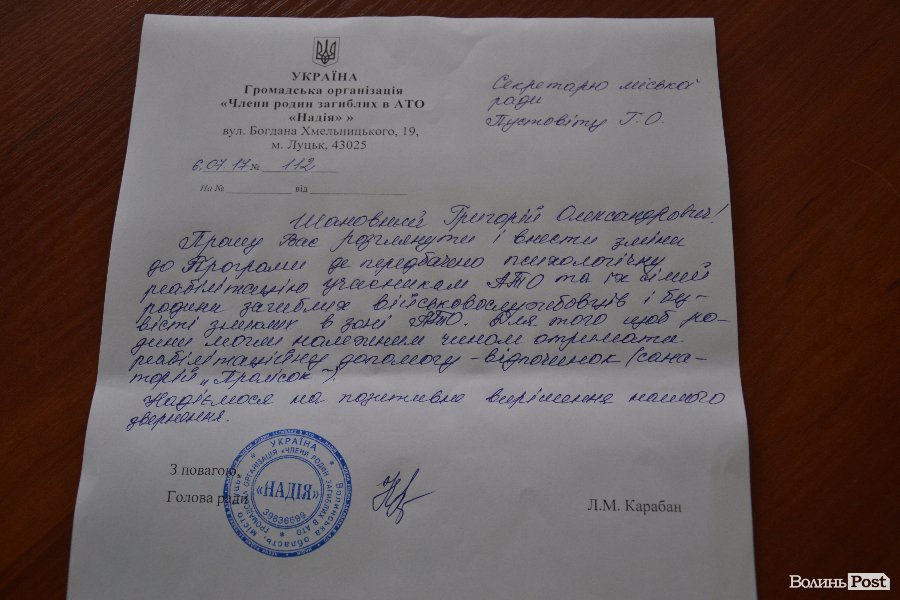 УКРАЇНА
Громадська організація
«Члени родин загиблих в АТО
«Надія» »
вул. Богдана Хмельницького, 19,
м. Луцьк, 43025
6.07.17 № 112
На № від
Секретарю міської
ради
Пустовіту Г.О.
Шановний Григорій Олександрович!
Прошу Вас розглянути і внести зміни
до Програми де передбачено психологічну
реабілітацію учасникам АТО та їх сімей
родини загиблих військовослужбовців і бе-
вісті зниклих в зоні АТО. Для того щоб ро-
дини могли належним чином отримати
реабілітаційну допомогу - відпочинок (сана-
торій "Пролісок").
Надіємося на позитивне вирішення нашого
звернення.
З повагою,
Голова ради
Л.М. Карабан
УКРАЇНА
ГРОМАДСЬКА ОРГАНІЗАЦІЯ «ЧЛЕНИ РОДИН ЗАГИБЛИХ В АТО
«НАДІЯ»
39636599
Волинська область, місто Луцьк
ВолиньPost